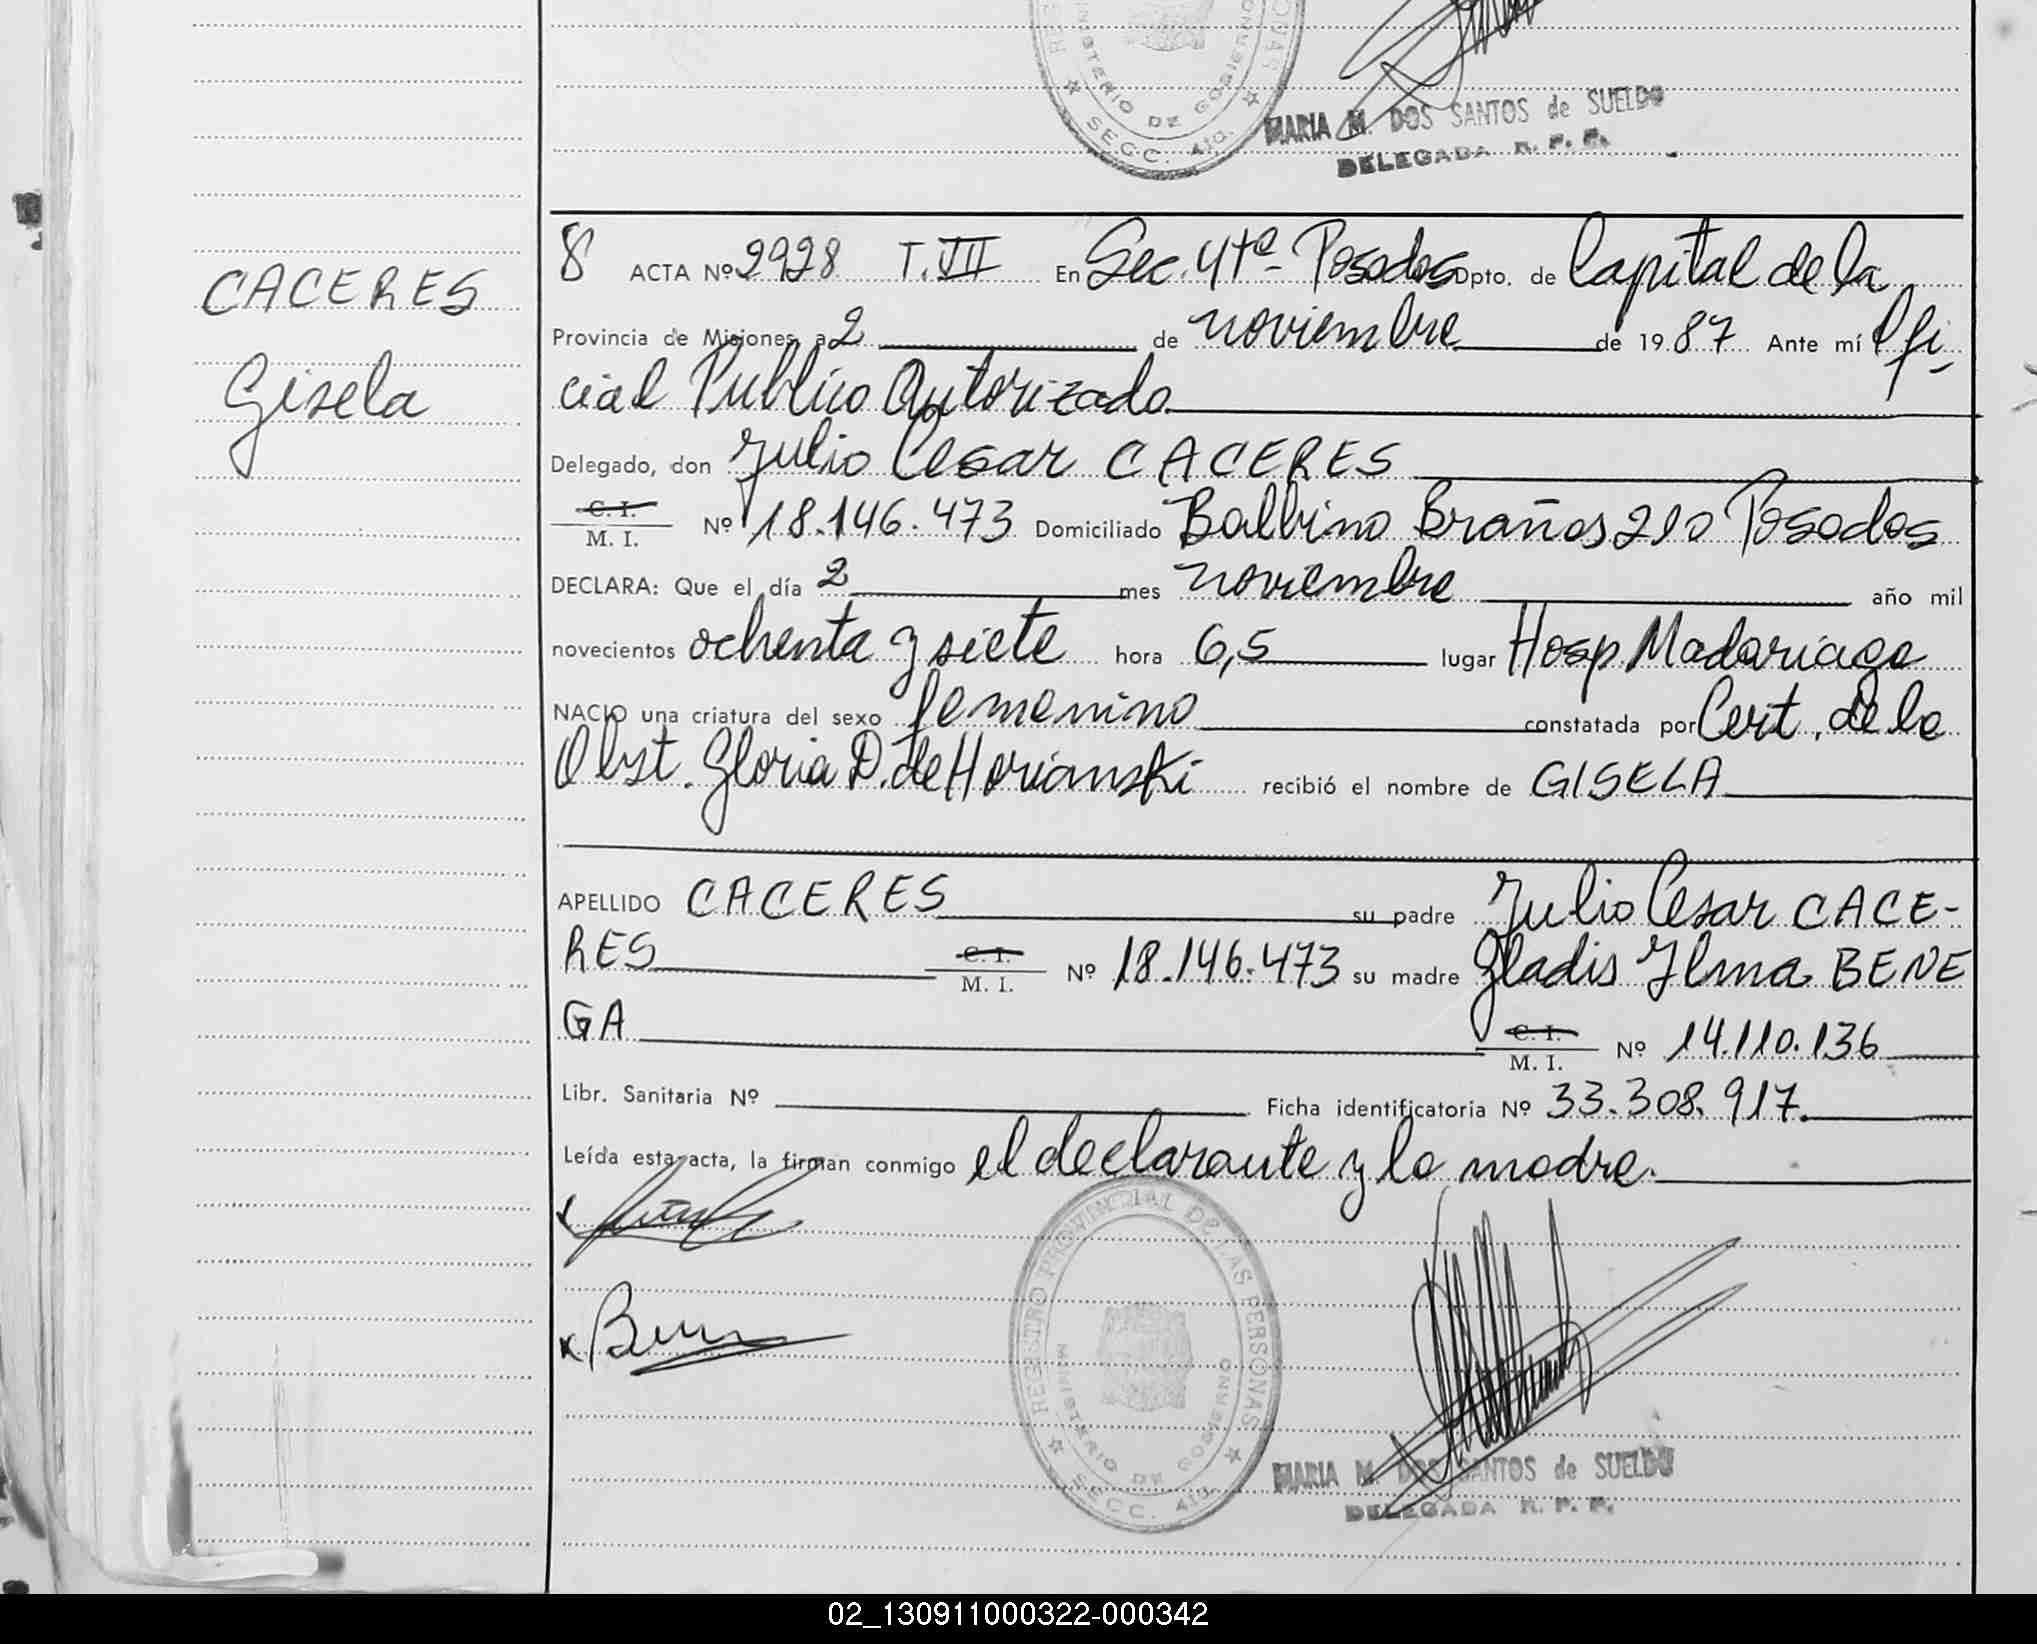 MINISTERIO DE GOBIERNO
SECC. 4ta.
MARIA M. DOS SANTOS de SUELDO
DELEGADA R. P. P.
CACERES
Gisela
8 ACTA Nº 2928 T. VII En Sec. 4ta Posadas Dpto. de Capital de la
Provincia de Misiones a 2 de noviembre de 1987 Ante mí Ofi-
cial Publico Autorizado
Delegado, don Julio Cesar CACERES
C. I.
M. I. Nº 18.146.473 Domiciliado Balbino Brañas 210 Posadas
DECLARA: Que el día 2 mes noviembre año mil
novecientos ochenta y siete hora 6,5 lugar Hosp Madariaga
NACIO una criatura del sexo femenino constatada por Cert. de la
Obst. Gloria D. de Horianski recibió el nombre de GISELA
APELLIDO CACERES su padre Julio Cesar CACE-
RES C. I. M. I. Nº 18.146.473 su madre Gladis Ilma BENE
GA C. I. M. I. Nº 14.110.136
Libr. Sanitaria Nº Ficha identificatoria Nº 33.308.917.
Leída esta acta, la firman conmigo el declarante y la madre.
REGISTRO PROVINCIAL DE LAS PERSONAS
MINISTERIO DE GOBIERNO
SECC. 4ta.
MARIA M. DOS SANTOS de SUELDO
DELEGADA R. P. P.
02_130911000322-000342